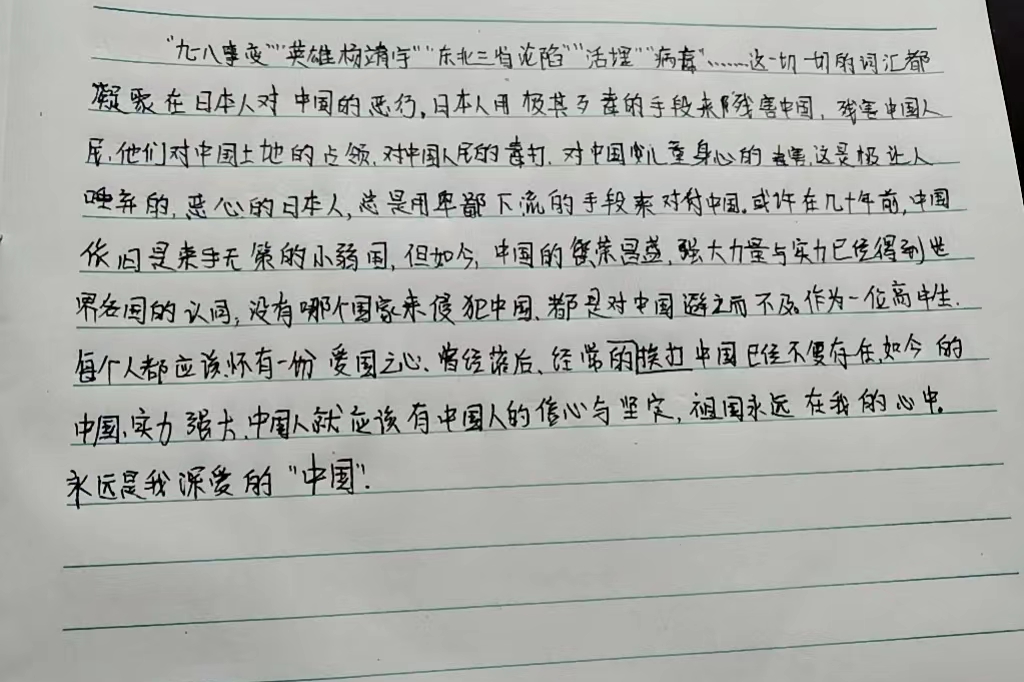 “九一八事变”“英雄杨靖宇”“东北三省沦陷”“活埋”“病毒”……这一切一切的词汇都
凝聚在日本人对中国的恶行，日本人用极其歹毒的手段来残害中国，残害中国人
民，他们对中国土地的占领，对中国人民的毒打，对中国幼儿童身心的毒害，这是极让人
唾弃的，恶心的日本人，总是用卑鄙下流的手段来对付中国。或许在几十年前，中国
依旧是束手无策的小弱国，但如今，中国的繁荣昌盛，强大力量与实力已经得到世
界各国的认同，没有哪个国家来侵犯中国，都是对中国避之而不及。作为一位高中生，
每个人都应该怀有一份爱国之心，曾经落后、经常的挨打中国已经不复存在，如今的
中国，实力强大，中国人就应该有中国人的信心与坚定，祖国永远在我的心中。
永远是我深爱的“中国”！